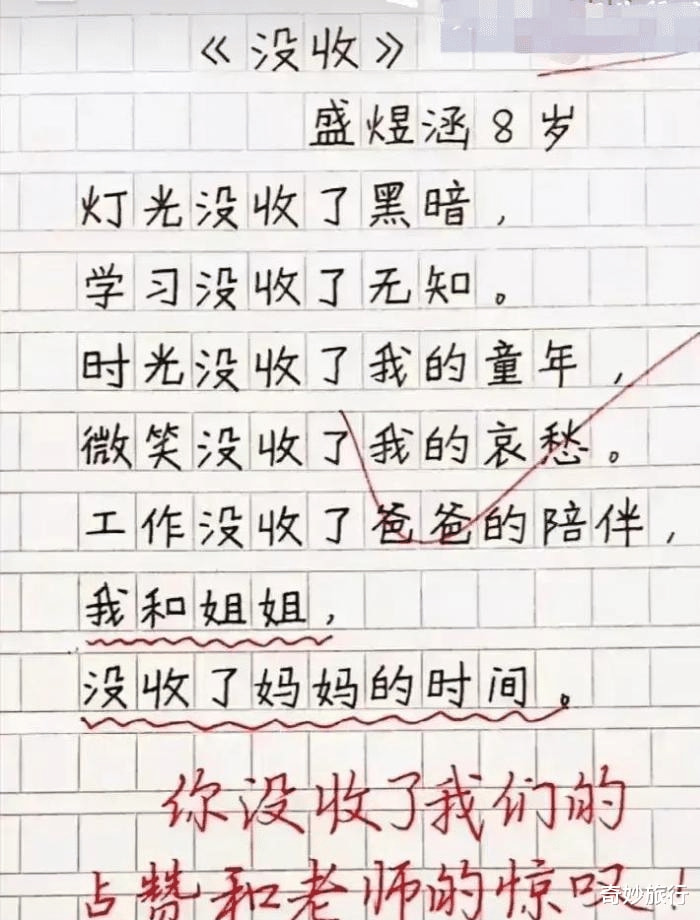 《没收》
盛煜涵8岁
灯光没收了黑暗，
学习没收了无知。
时光没收了我的童年，
微笑没收了我的哀愁。
工作没收了爸爸的陪伴，
我和姐姐，
没收了妈妈的时间。
你没收了我们的
点赞和老师的惊叹！
奇妙旅行